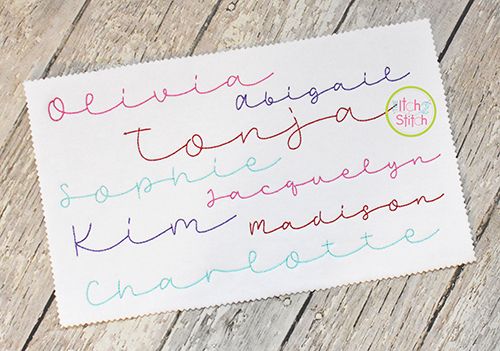 Olivia
abigail
Tonja
Itch2
Stitch
Sophie
Jacquelyn
Kim
madison
Charlotte